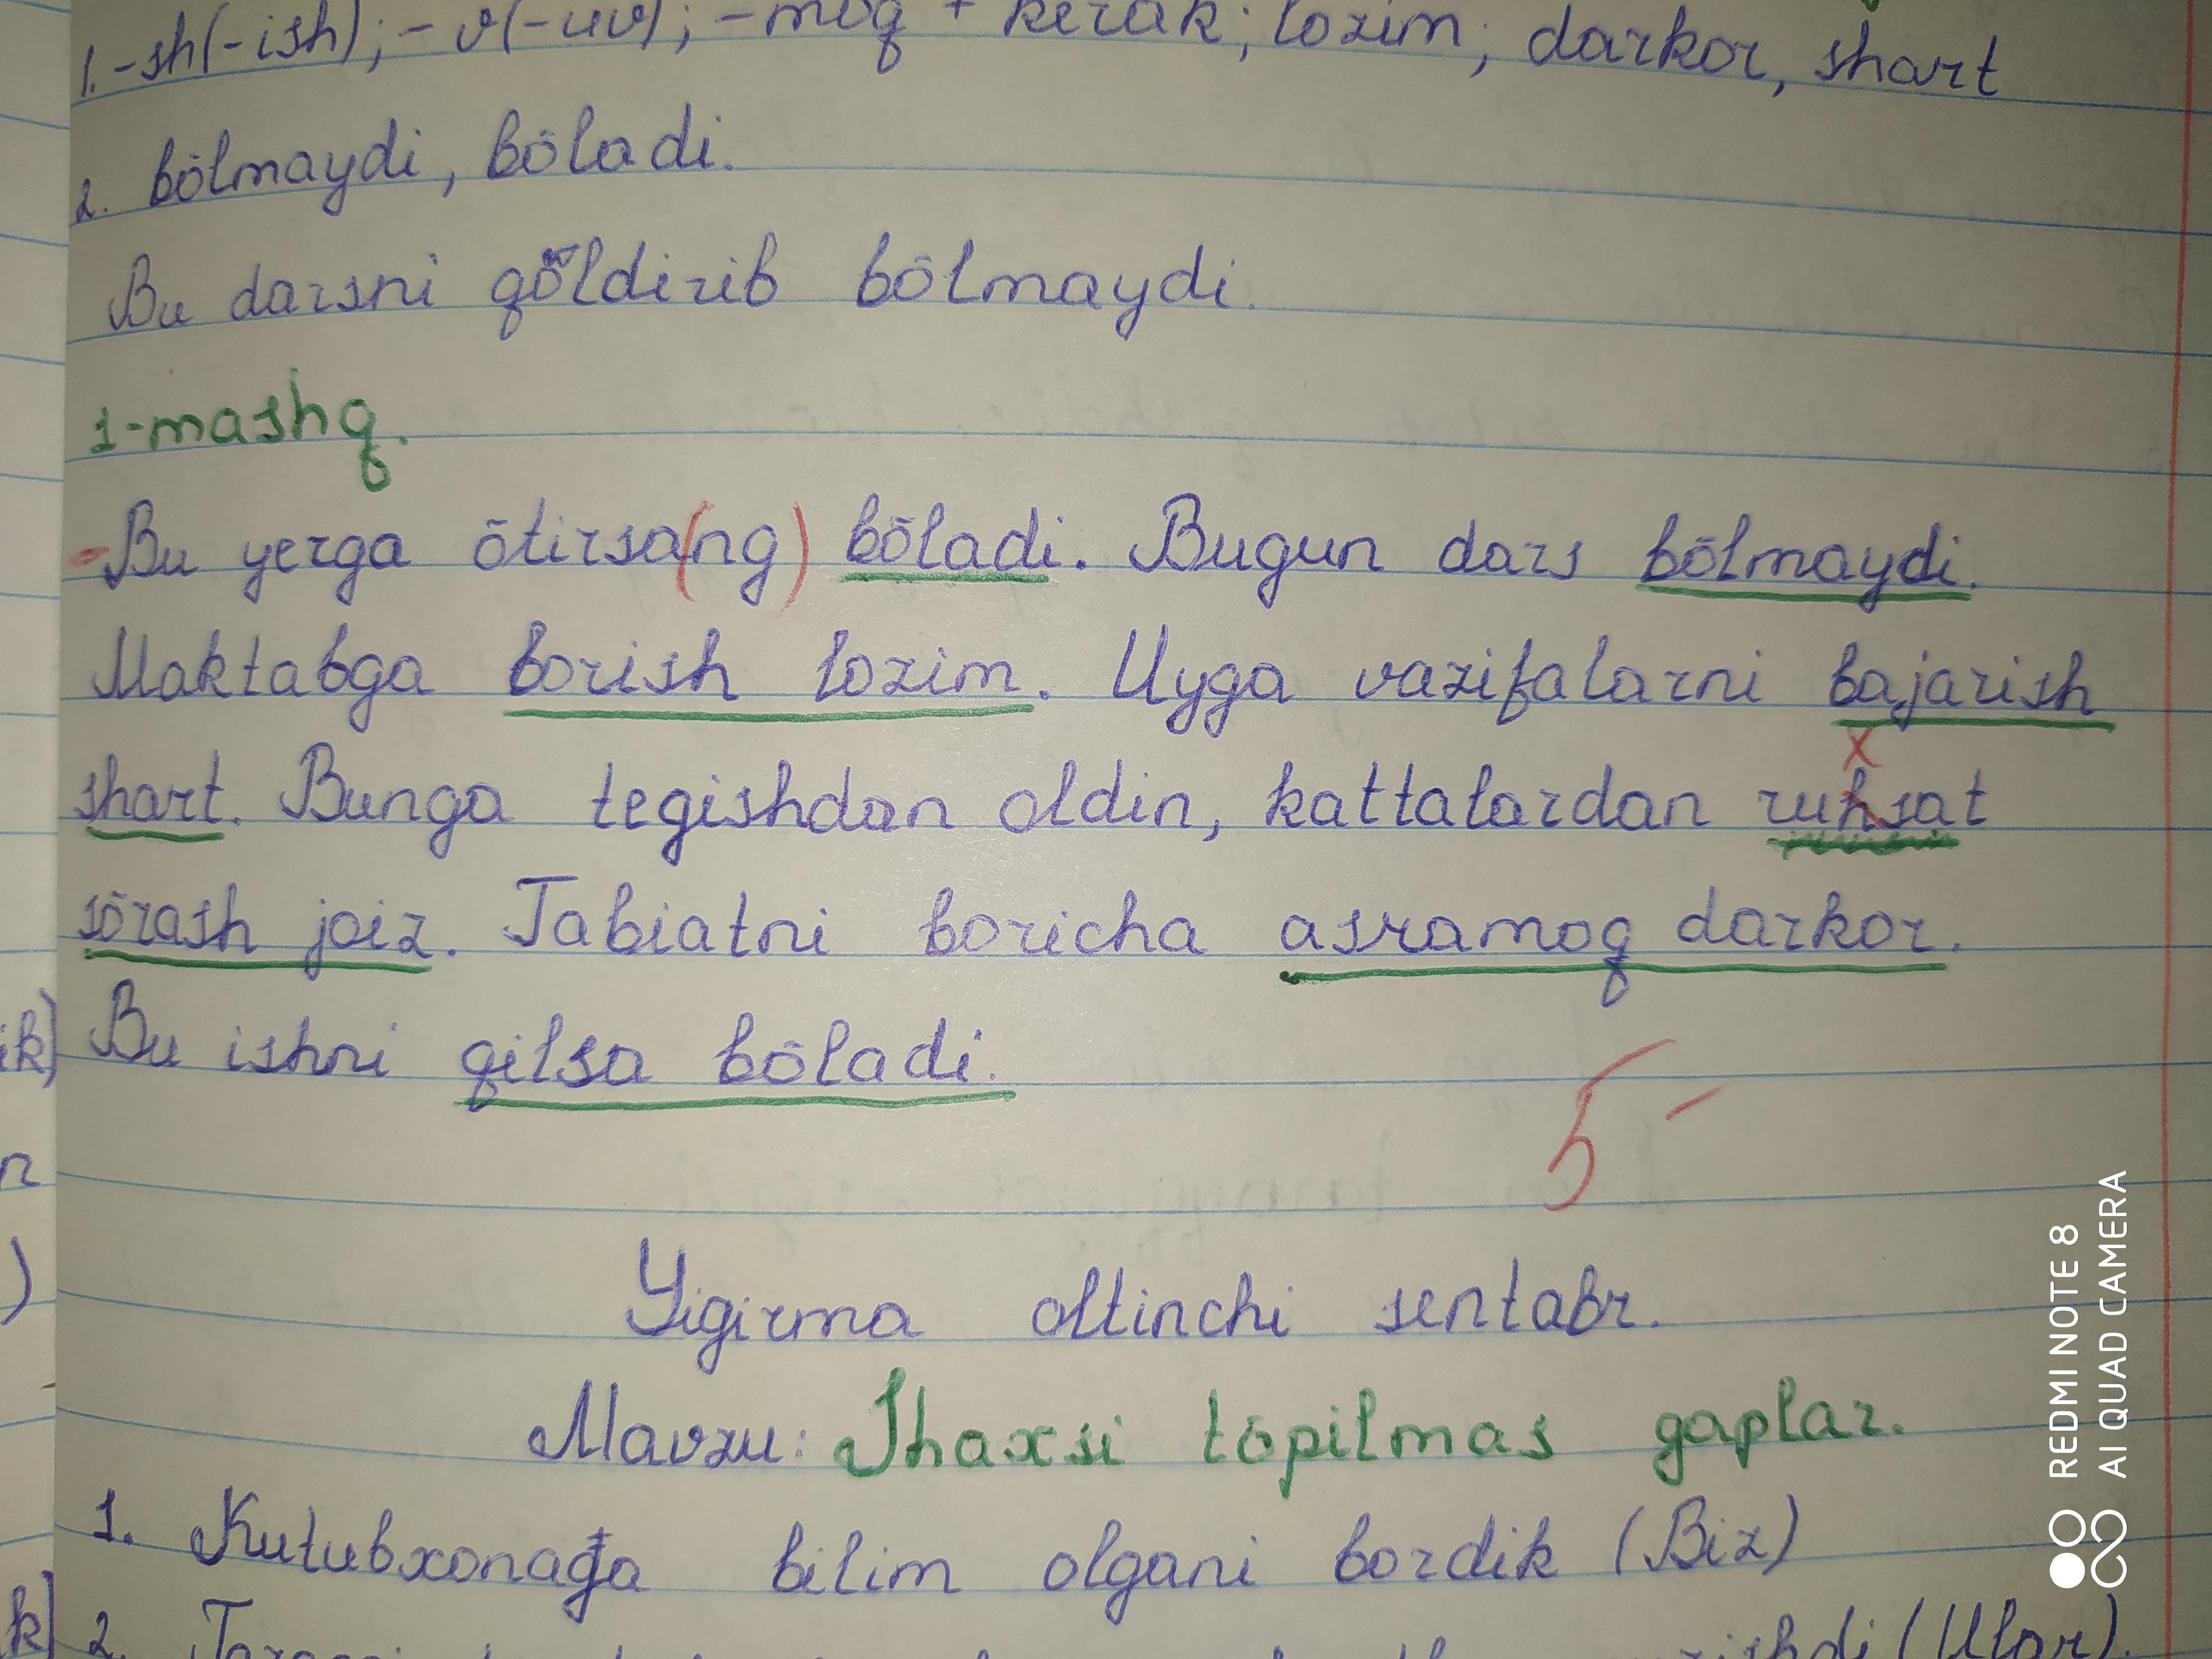 1. -sh(-ish); -v(-uv); -moq + kerak; lozim; darkor, shart
2. bōlmaydi, bōladi.
Bu darsni qōldirib bōlmaydi.
1-mashq.
-Bu yerga ōtirsa(ng) bōladi. Bugun dars bōlmaydi.
Maktabga borish lozim. Uyga vazifalarni bajarish
x
shart. Bunga tegishdan oldin, kattalardan ruhsat
sōrash joiz. Tabiatni boricha asramoq darkor.
ik) Bu ishni qilsa bōladi.
5-
Yigirma oltinchi sentabr.
Mavzu: Shaxsi topilmas gaplar.
1. Kutubxonaga bilim olgani bordik (Biz)
k) 2. (Ular).
REDMI NOTE 8
AI QUAD CAMERA